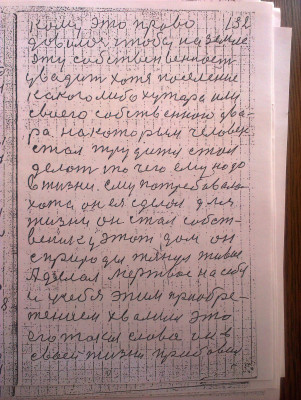 кому это право 132
довилос чтобы на земле
эту собственность
увидит хотя поселение
какого либо хутара или
своего собственного два-
ра. на которым человек
стал трудится стал
делат то чего ему надо
в жизни. ему потребовалас
хата он ея сделал для
жизни он стал собст-
венику этот дом он
с природы тянул живое
а делал мертвое на себя
и у себя этим приобре-
тением хвалился это
его такия слова он в
своей жизни прибавил